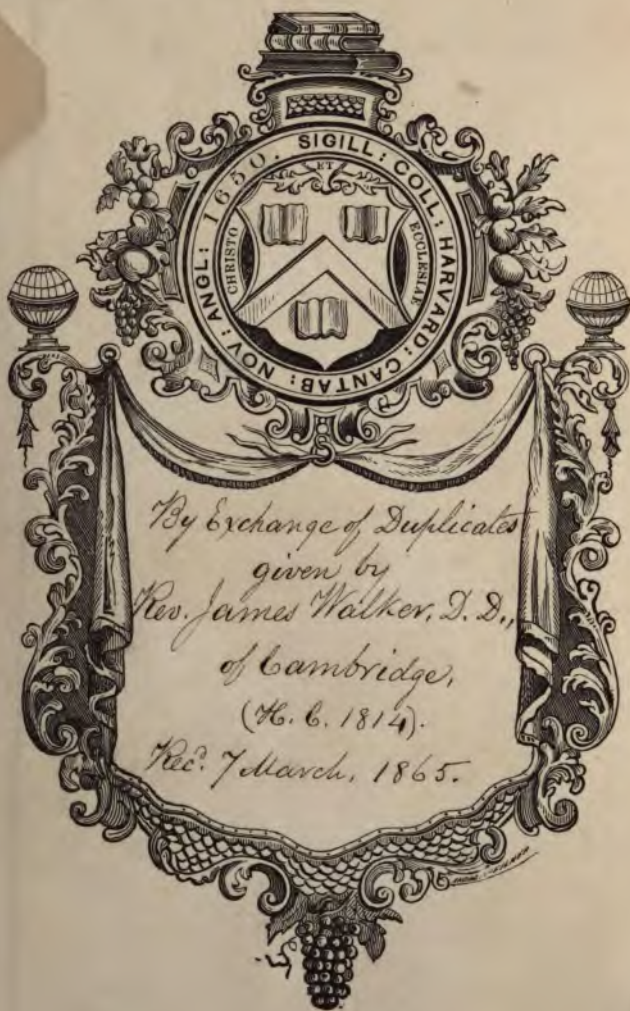 SIGILL: COLL: HARVARD: CANTAB: NOV: ANGL: 1650.
ET
CHRISTO
ECCLESIAE
By Exchange of Duplicates
given by
Rev. James Walker, D. D.,
of Cambridge,
(H. C. 1814).
Rec'd. 7 March, 1865.